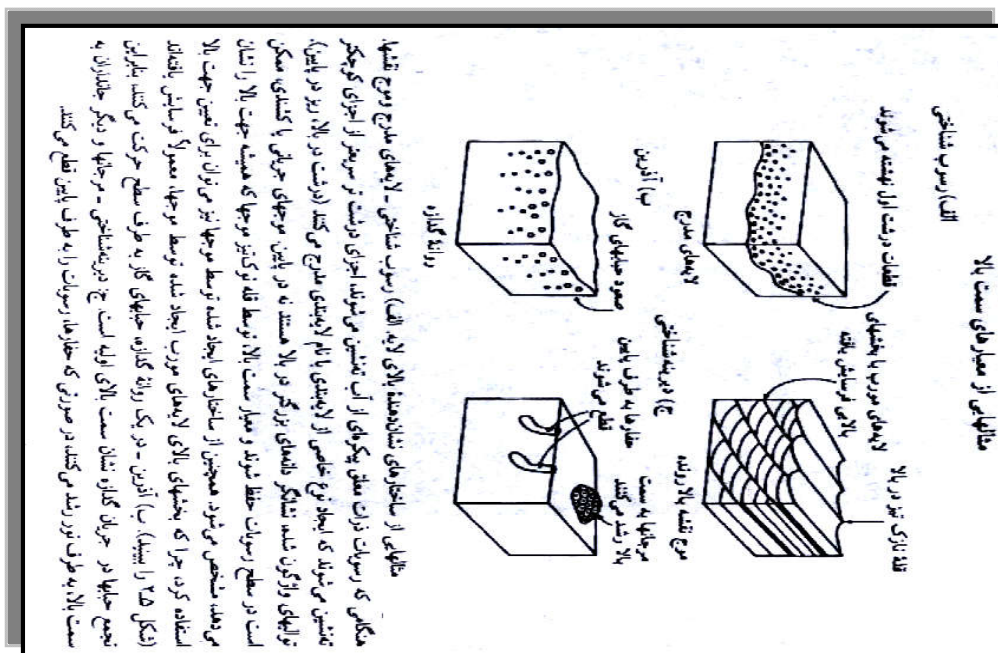 مثالهایی از معیارهای سمت بالا
الف) رسوب شناختی
قطعات درشت اول نهشته می‌شوند
لایه‌های مورب با بخشهای
بالایی فرسایش یافته
قلهٔ نازک تیز در بالا
لایه‌های مدرج
موج نقشه بالا رونده
ب) آذرین
صعود حبابهای گاز
روانهٔ گدازه
ج) دیرینه‌شناختی
حفارها به طرف پایین
قطع می‌شوند
مرجانها به سمت
بالا رشد می‌کنند
مثالهایی از ساختارهای نشان‌دهندهٔ بالای لایه. الف) رسوب شناختی - لایه‌های مدرج و موج نقشها.
هنگامی که رسوبات ذرات معلق پیکره‌ای از آب ته‌نشین می‌شوند، اجزای درشت تر سریعتر از اجزای کوچکتر
ته‌نشین می‌شوند که ایجاد نوع خاصی از لایه‌بندی با نام لایه‌بندی مدرج می‌کند (درشت در بالا، ریز در پایین).
توالیهای واژگون شده، نشانگر دانه‌های بزرگتر در بالا هستند نه در پایین. موجهای جریانی یا کشندی، ممکن
است در سطح رسوبات حفظ شوند و معیار سمت بالا، توسط قله نوک‌تیز موجها که همیشه جهت بالا را نشان
می‌دهد، مشخص می‌شود. همچنین از ساختارهای ایجاد شده توسط موجها نیز می‌توان برای تعیین جهت بالا
استفاده کرد، چرا که بخشهای بالای لایه‌های مورب ایجاد شده توسط موجها، معمولاً فرسایش یافته‌اند
(شکل ۲.۵ را ببینید). ب) آذرین - در یک روانهٔ گدازه، حبابهای گاز به طرف سطح حرکت می‌کنند، بنابراین
تجمع حبابها در جریان گدازه نشان سمت بالای اولیه است. ج: دیرینه‌شناختی - مرجانها و دیگر جانداران به
سمت بالا، به طرف نور رشد می‌کنند، در صورتی که حفارها، رسوبات را به طرف پایین قطع می‌کنند.